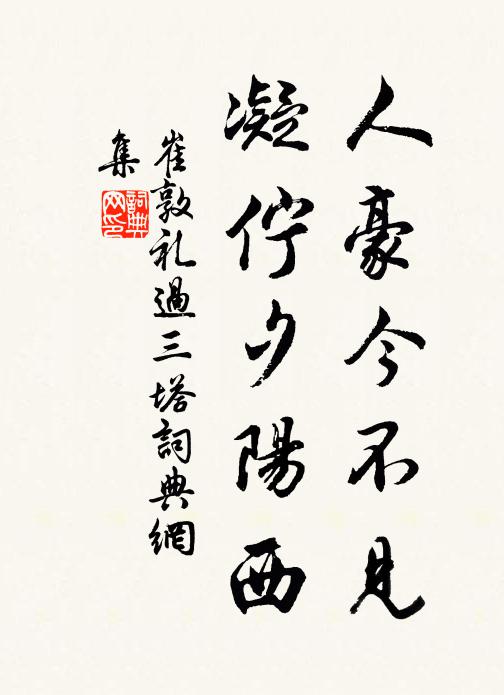 人豪今不見
凝佇夕陽西
崔敦礼過三塔詞典網
集
詞典网印